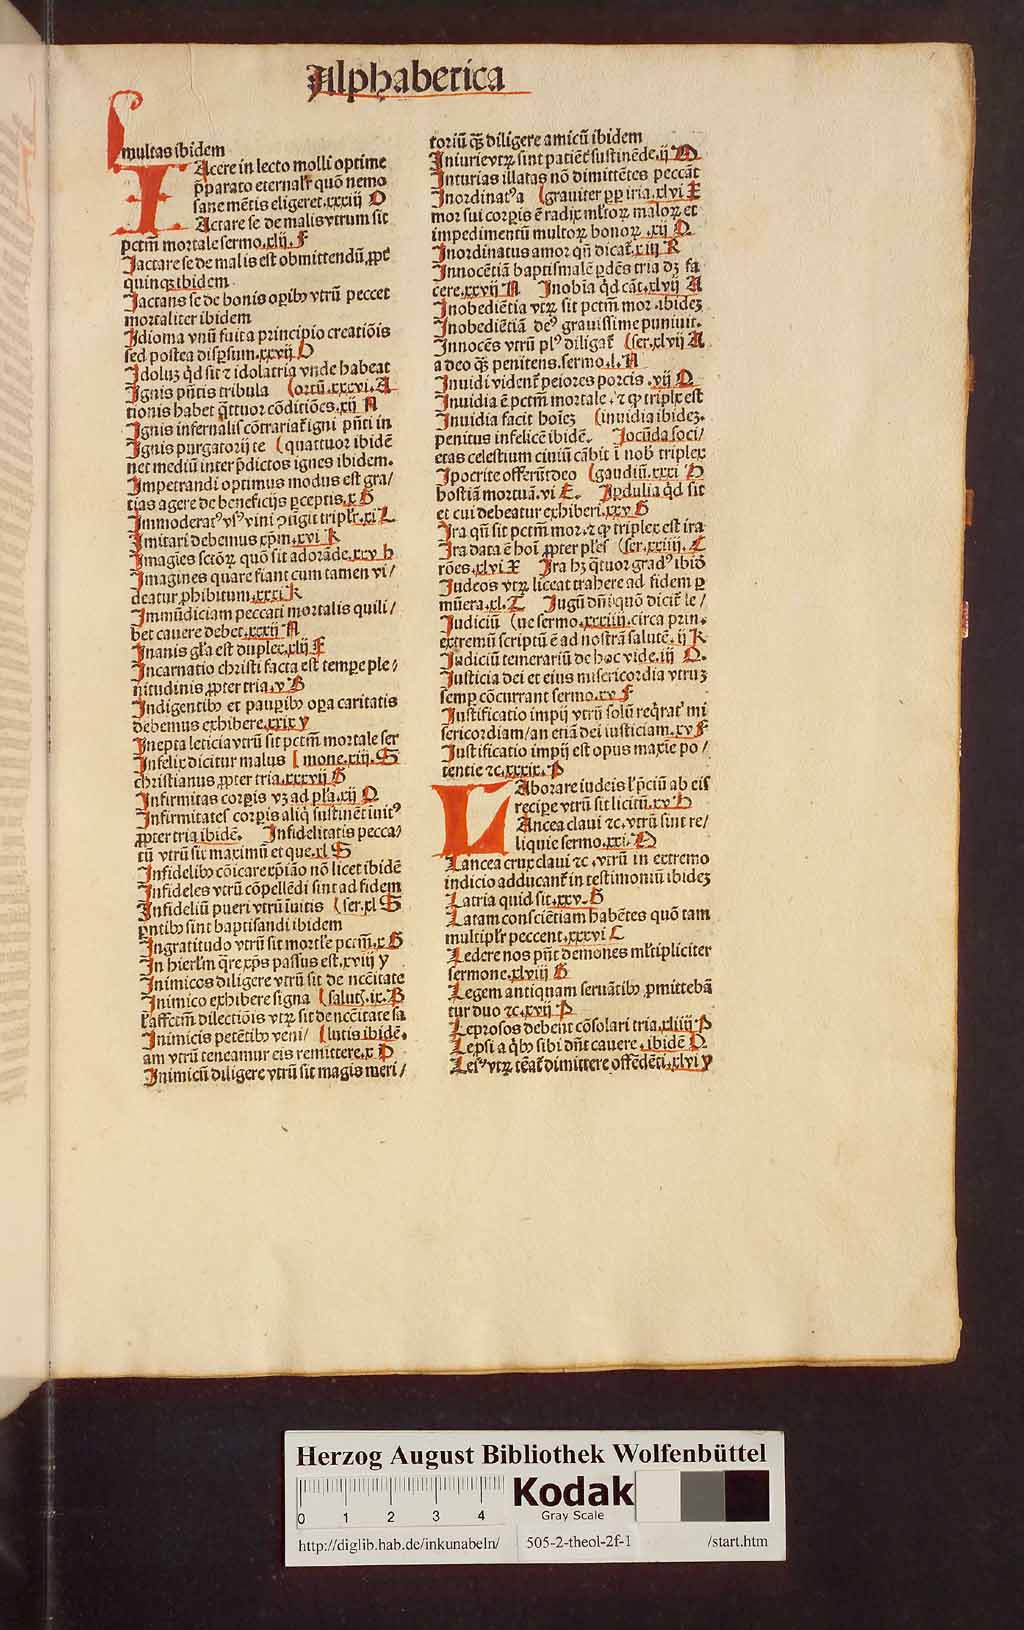 Alphabetica
multas ibidem
IAcere in lecto molli optime
p̄parato eternalr̄ quō nemo
sane mētis eligeret.xxxiij O
Actare se de malis vtrum sit
pctm̄ mortale sermo.xlij.F
Jactare se de malis est obmittendū ꝓpt̄
quinqꝫ ibidem
Jactans se de bonis oꝑibꝰ vtrū peccet
mortaliter ibidem
Idioma vnū fuit a principio creatiōis
sed postea disꝑsum.xxvij
Idoluꝫ qd̄ sit ⁊ idolatria vnde habeat
Ignis pn̄tis tribula (ortū.xxxvi.A
tionis habet q̄ttuor cōditiōes.xij A
Ignis infernalis cōtrariat̄ igni pn̄ti in
Ignis purgatorij te (quattuor ibidē
net mediū inter p̄dictos ignes ibidem.
Impetrandi optimus modus est gra/
tias agere de beneficijs ꝑceptis.x
Immoderatꝰ vsꝰ vini ↄ̄ingit triplr̄.xi L
Imitari debemus xp̄m.xvi K
Imagīes sctōꝝ quō sit adorāde.xxv h
Imagines quare fiant cum tamen vi/
deatur ꝓhibitum.xxxi K
Immūdiciam peccati mortalis quili/
bet cauere debet.xxxij A
Inanis gl̄a est duplex.xlij F
Incarnatio christi facta est temꝑe ple/
nitudinis ꝓpter tria.v B
Indigentibꝰ et pauꝑibꝰ oꝑa caritatis
debemus exhibere.xxix y
Inepta leticia vtrū sit pctm̄ mortale ser
Infelix dicitur malus (mone.xiij.S
christianus ꝓpter tria.xxxvij
Infirmitas corꝑis vꝫ ad pl̄a.xij O
Infirmitates corꝑis aliq̄ sustinēt inuitꝰ
ꝓpter tria ibidē. Infidelitatis pecca/
tū vtrū sit maximū et que.xl S
Infidelibꝰ cōicare xp̄iāo nō licet ibidē
Infideles vtrū cōpellēdi sint ad fidem
Infideliū pueri vtrū īuitis (ser.xl S
pn̄tibꝰ sint baptisandi ibidem
Ingratitudo vtrū sit mortl̄e pctm̄.x
In hierl̄m q̄re xp̄s passus est.xviij y
Inimicos diligere vtrū sit de ncc̄itate
Inimico exhibere signa (salutꝭ.ix.B
l̄ affectm̄ dilectiōis vtꝝ sit de ncc̄itate sa
Inimicis petētibꝰ veni/ (lutis ibidē.
am vtrū teneamur eis remittere.x P
Inimicū diligere vtrū sit magis meri/
toriū qꝫ̄ diligere amicū ibidem
Iniurie vtꝝ sint patiēt̄ sustinēde.ij
Iniurias illatas nō dimittētes peccāt
Inordinatꝰ a (grauiter ꝓp̄ iria.xlvi E
mor sui corꝑis ē radix ml̄toꝝ maloꝝ et
impedimentū multoꝝ bonoꝝ.xij O
Inordinatus amor qn̄ dicat̄.xiij R
Innocētiā baptismalē ꝑdēs tria dꝫ fa
cere.xxvij A Inobīa qd̄ cāt̄.xlvij A
Inobediētia vtꝝ sit pctm̄ mor.ibideꝫ
Inobediētiā deꝰ grauissime puniuit.
Innocēs vtrū plꝰ diligat̄ (ser.xlvij A
a deo qꝫ̄ penitens.sermo.l.A
Inuidi vident̄ peiores porcis.vij O
Inuidia ē pctm̄ mortale.⁊ qꝫ triplex est
Inuidia facit hoīeꝫ (inuidia ibideꝫ.
penitus infelicē ibidē. Jocūda soci/
etas celestium ciuiū cābit ī nob̄ triplex
Ipocrite offerūt deo (gaudiū.xxxi
hostiā mortuā.vi E. Iꝑdulia qd̄ sit
et cui debeatur exhiberi.xxv
Ira qn̄ sit pctm̄ mor.⁊ qꝫ triplex est ira
Ira data ē hoī ꝓpter pl̄es (ser.xxiiij.C
rōes.xlvi X Ira hꝫ q̄tuor gradꝰ ibidē
Judeos vtꝝ liceat trahere ad fidem ꝑ
mūera.xl.T Jugū dn̄i quō dicit̄ le/
Judiciū (ue sermo.xxxiiij.circa prin.
extremū scriptū ē ad nostrā salutē.ij K
Judiciū temerariū de hoc vide.iij O.
Justicia dei et eius misericordia vtruꝫ
semꝑ cōcurrant sermo.xv F
Justificatio impij vtrū solū req̄rat̄ mi
sericordiam/an etiā dei iusticiam.xv F
Justificatio impij est opus maxīe po/
tentie ⁊c.xxxix.P
LAborare iudeis l̄ p̄ciū ab eis
reciꝑe vtrū sit licitū.xv
Ancea claui ⁊c.vtrū sint re/
liquie sermo.xxi.
Lancea crux claui ⁊c.vtrū in extremo
indicio adducant̄ in testimoniū ibideꝫ
Latria quid sit.xxv.
Latam consciētiam habētes quō tam
multiplr̄ peccent.xxxvi C
Ledere nos pn̄t demones ml̄tipliciter
sermone.xlviij
Legem antiquam seruātibꝰ ꝓmittebā
tur duo ⁊c.xvij P
Leprosos debent cōsolari tria.xliiij P
Leꝑsi a qꝰbꝰ sibi dn̄t cauere.ibidē
vtꝝ tēat̄ dimittere offēdēti.xlvi y
Herzog August Bibliothek Wolfenbüttel
0 1 2 3 4
Kodak
Gray Scale
http://diglib.hab.de/inkunabeln/ 505-2-theol-2f-1 /start.htm